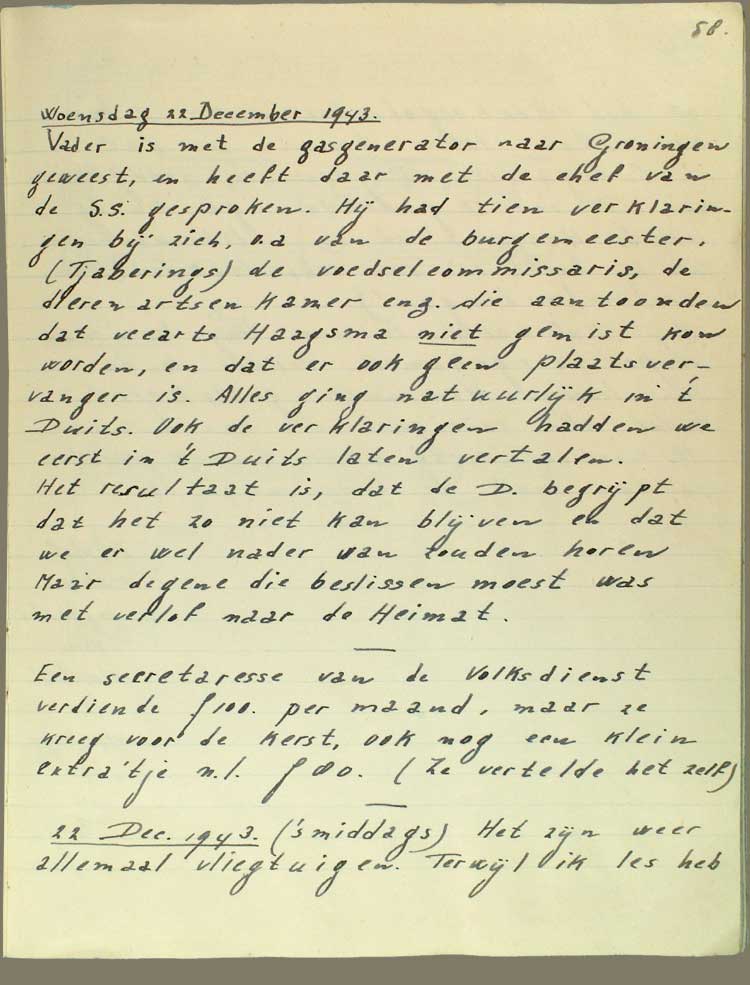 58.
Woensdag 22 December 1943.
Vader is met de gasgenerator naar Groningen
geweest, en heeft daar met de chef van
de S.S. gesproken. Hij had tien verklarin-
gen bij zich, o.a van de burgemeester,
(Tjaberings) de voedselcommissaris, de
dierenartsen Kamer enz. die aantoonden
dat veearts Haagsma niet gemist kon
worden, en dat er ook geen plaatsver-
vanger is. Alles ging natuurlijk in 't
Duits. Ook de verklaringen hadden we
eerst in 't Duits laten vertalen.
Het resultaat is, dat de D. begrijpt
dat het zo niet kan blijven en dat
we er wel nader van zouden horen
Maar degene die beslissen moest was
met verlof naar de Heimat.
Een secretaresse van de Volksdienst
verdiende ƒ100. per maand, maar ze
kreeg voor de kerst, ook nog een klein
extra'tje n.l. ƒ 800. (Ze vertelde het zelf)
22 Dec. 1943. ('s middags) Het zijn weer
allemaal vliegtuigen. Terwijl ik les heb